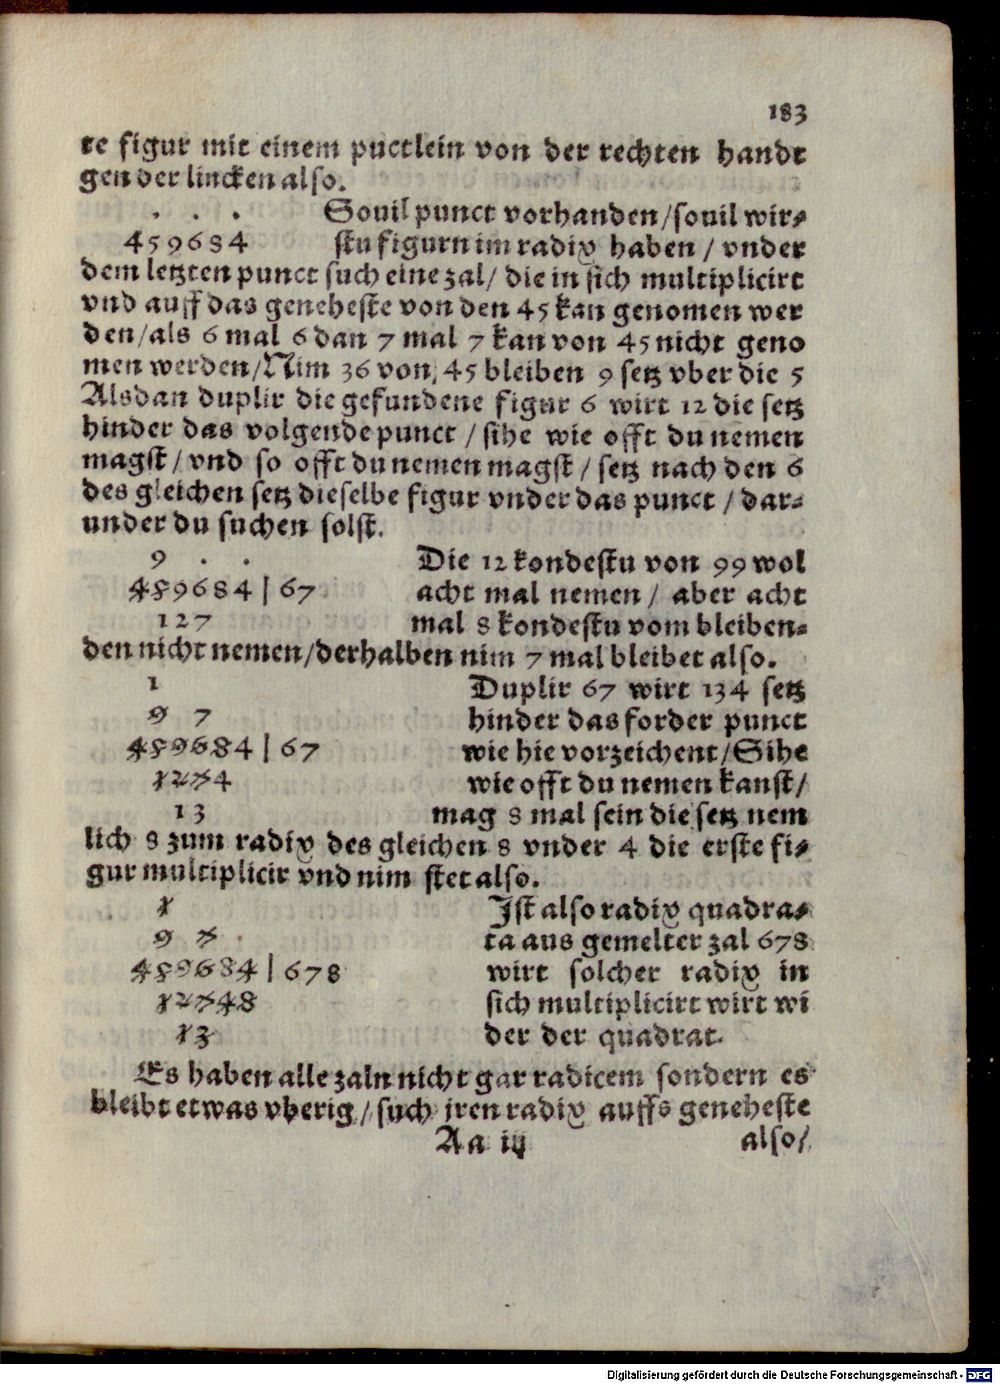 183
te figur mit einem puctlein von der rechten handt
gen der lincken also.
. . . Souil punct vorhanden/souil wir⸗
459684 stu figurn im radix haben / vnder
dem letzten punct such eine zal/ die in sich multiplicirt
vnd auff das geneheste von den 45 kan genomen wer
den/als 6 mal 6 dan 7 mal 7 kan von 45 nicht geno
men werden/Nim 36 von 45 bleiben 9 setz vber die 5
Alsdan duplir die gefundene figur 6 wirt 12 die setz
hinder das volgende punct / sihe wie offt du nemen
magst/ vnd so offt du nemen magst / setz nach den 6
des gleichen setz dieselbe figur vnder das punct / dar⸗
under du suchen solst.
9 . . Die 12 kondestu von 99 wol
459684 | 67 acht mal nemen / aber acht
127 mal 8 kondestu vom bleiben⸗
den nicht nemen/derhalben nim 7 mal bleibet also.
1 Duplir 67 wirt 134 setz
9 7 hinder das forder punct
459684 | 67 wie hie vorzeichent/Sihe
1274 wie offt du nemen kanst/
13 mag 8 mal sein die setz nem
lich 8 zum radix des gleichen 8 vnder 4 die erste fi⸗
gur multiplicir vnd nim stet also.
1 Ist also radix quadra⸗
9 7 ta aus gemelter zal 678
459684 | 678 wirt solcher radix in
12748 sich multiplicirt wirt wi
13 der der quadrat.
Es haben alle zaln nicht gar radicem sondern es
bleibt etwas vberig / such jren radix auffs geneheste
Aa iij also/
Digitalisierung gefördert durch die Deutsche Forschungsgemeinschaft - DFG